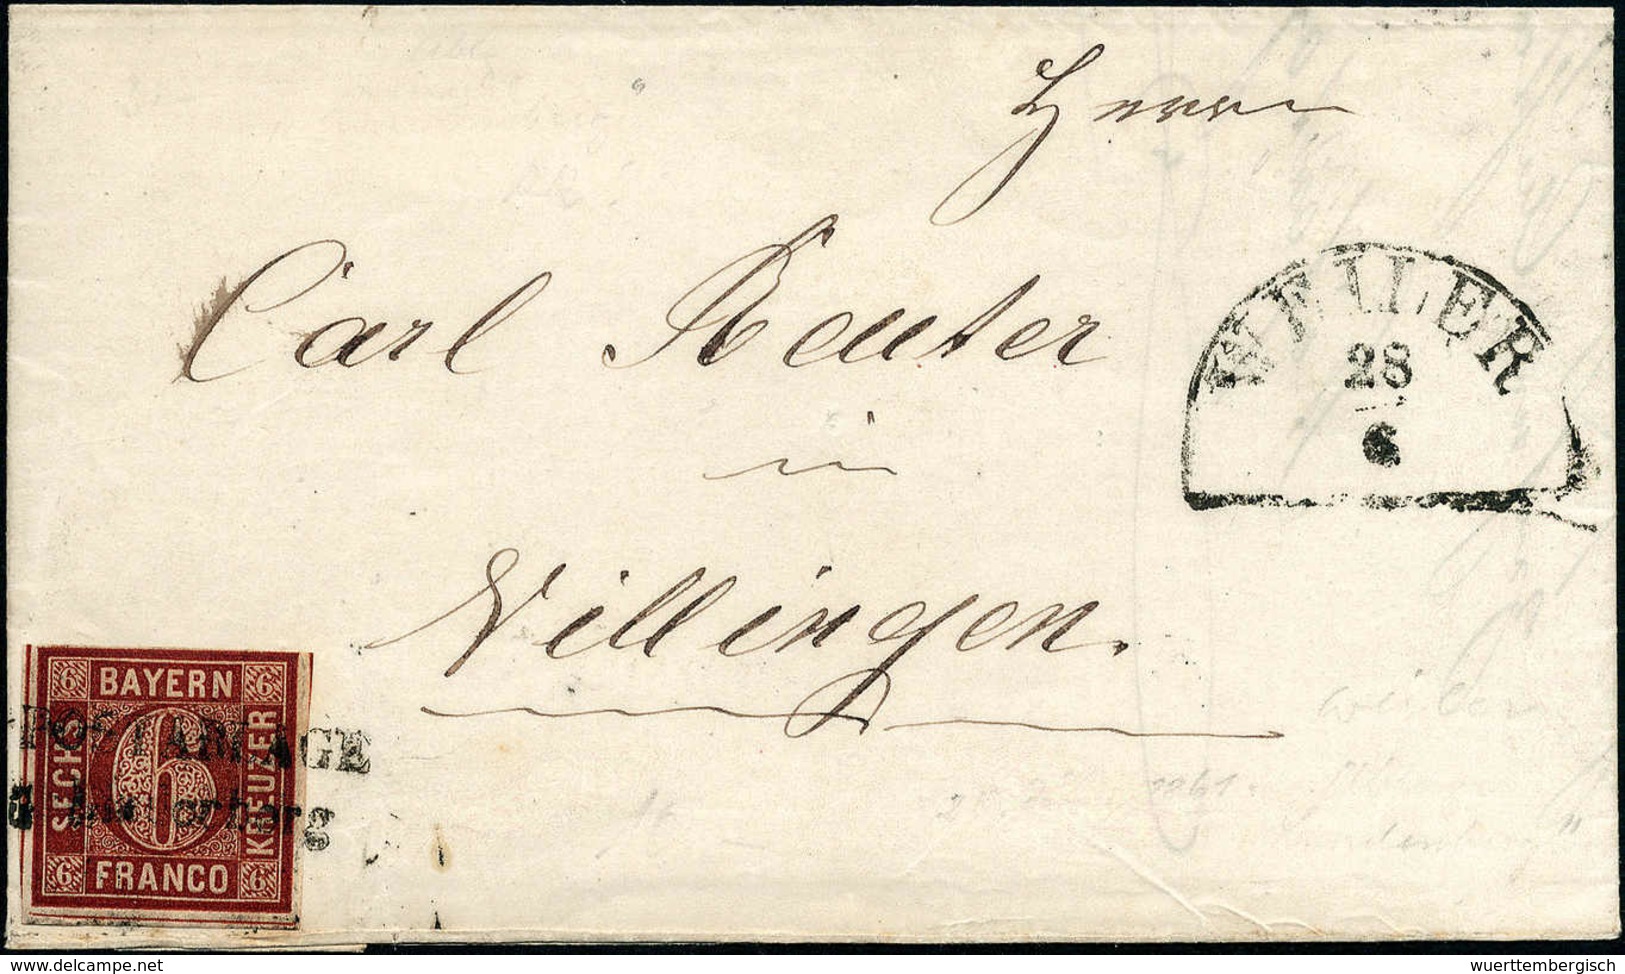 Herrn
Carl Reuter
in
Villingen.
WEILER
28
6
6 BAYERN 6
SECHS 6 KREUZER
6 FRANCO 6
POSTABLAGE
www.delcampe.net
wuerttembergisch